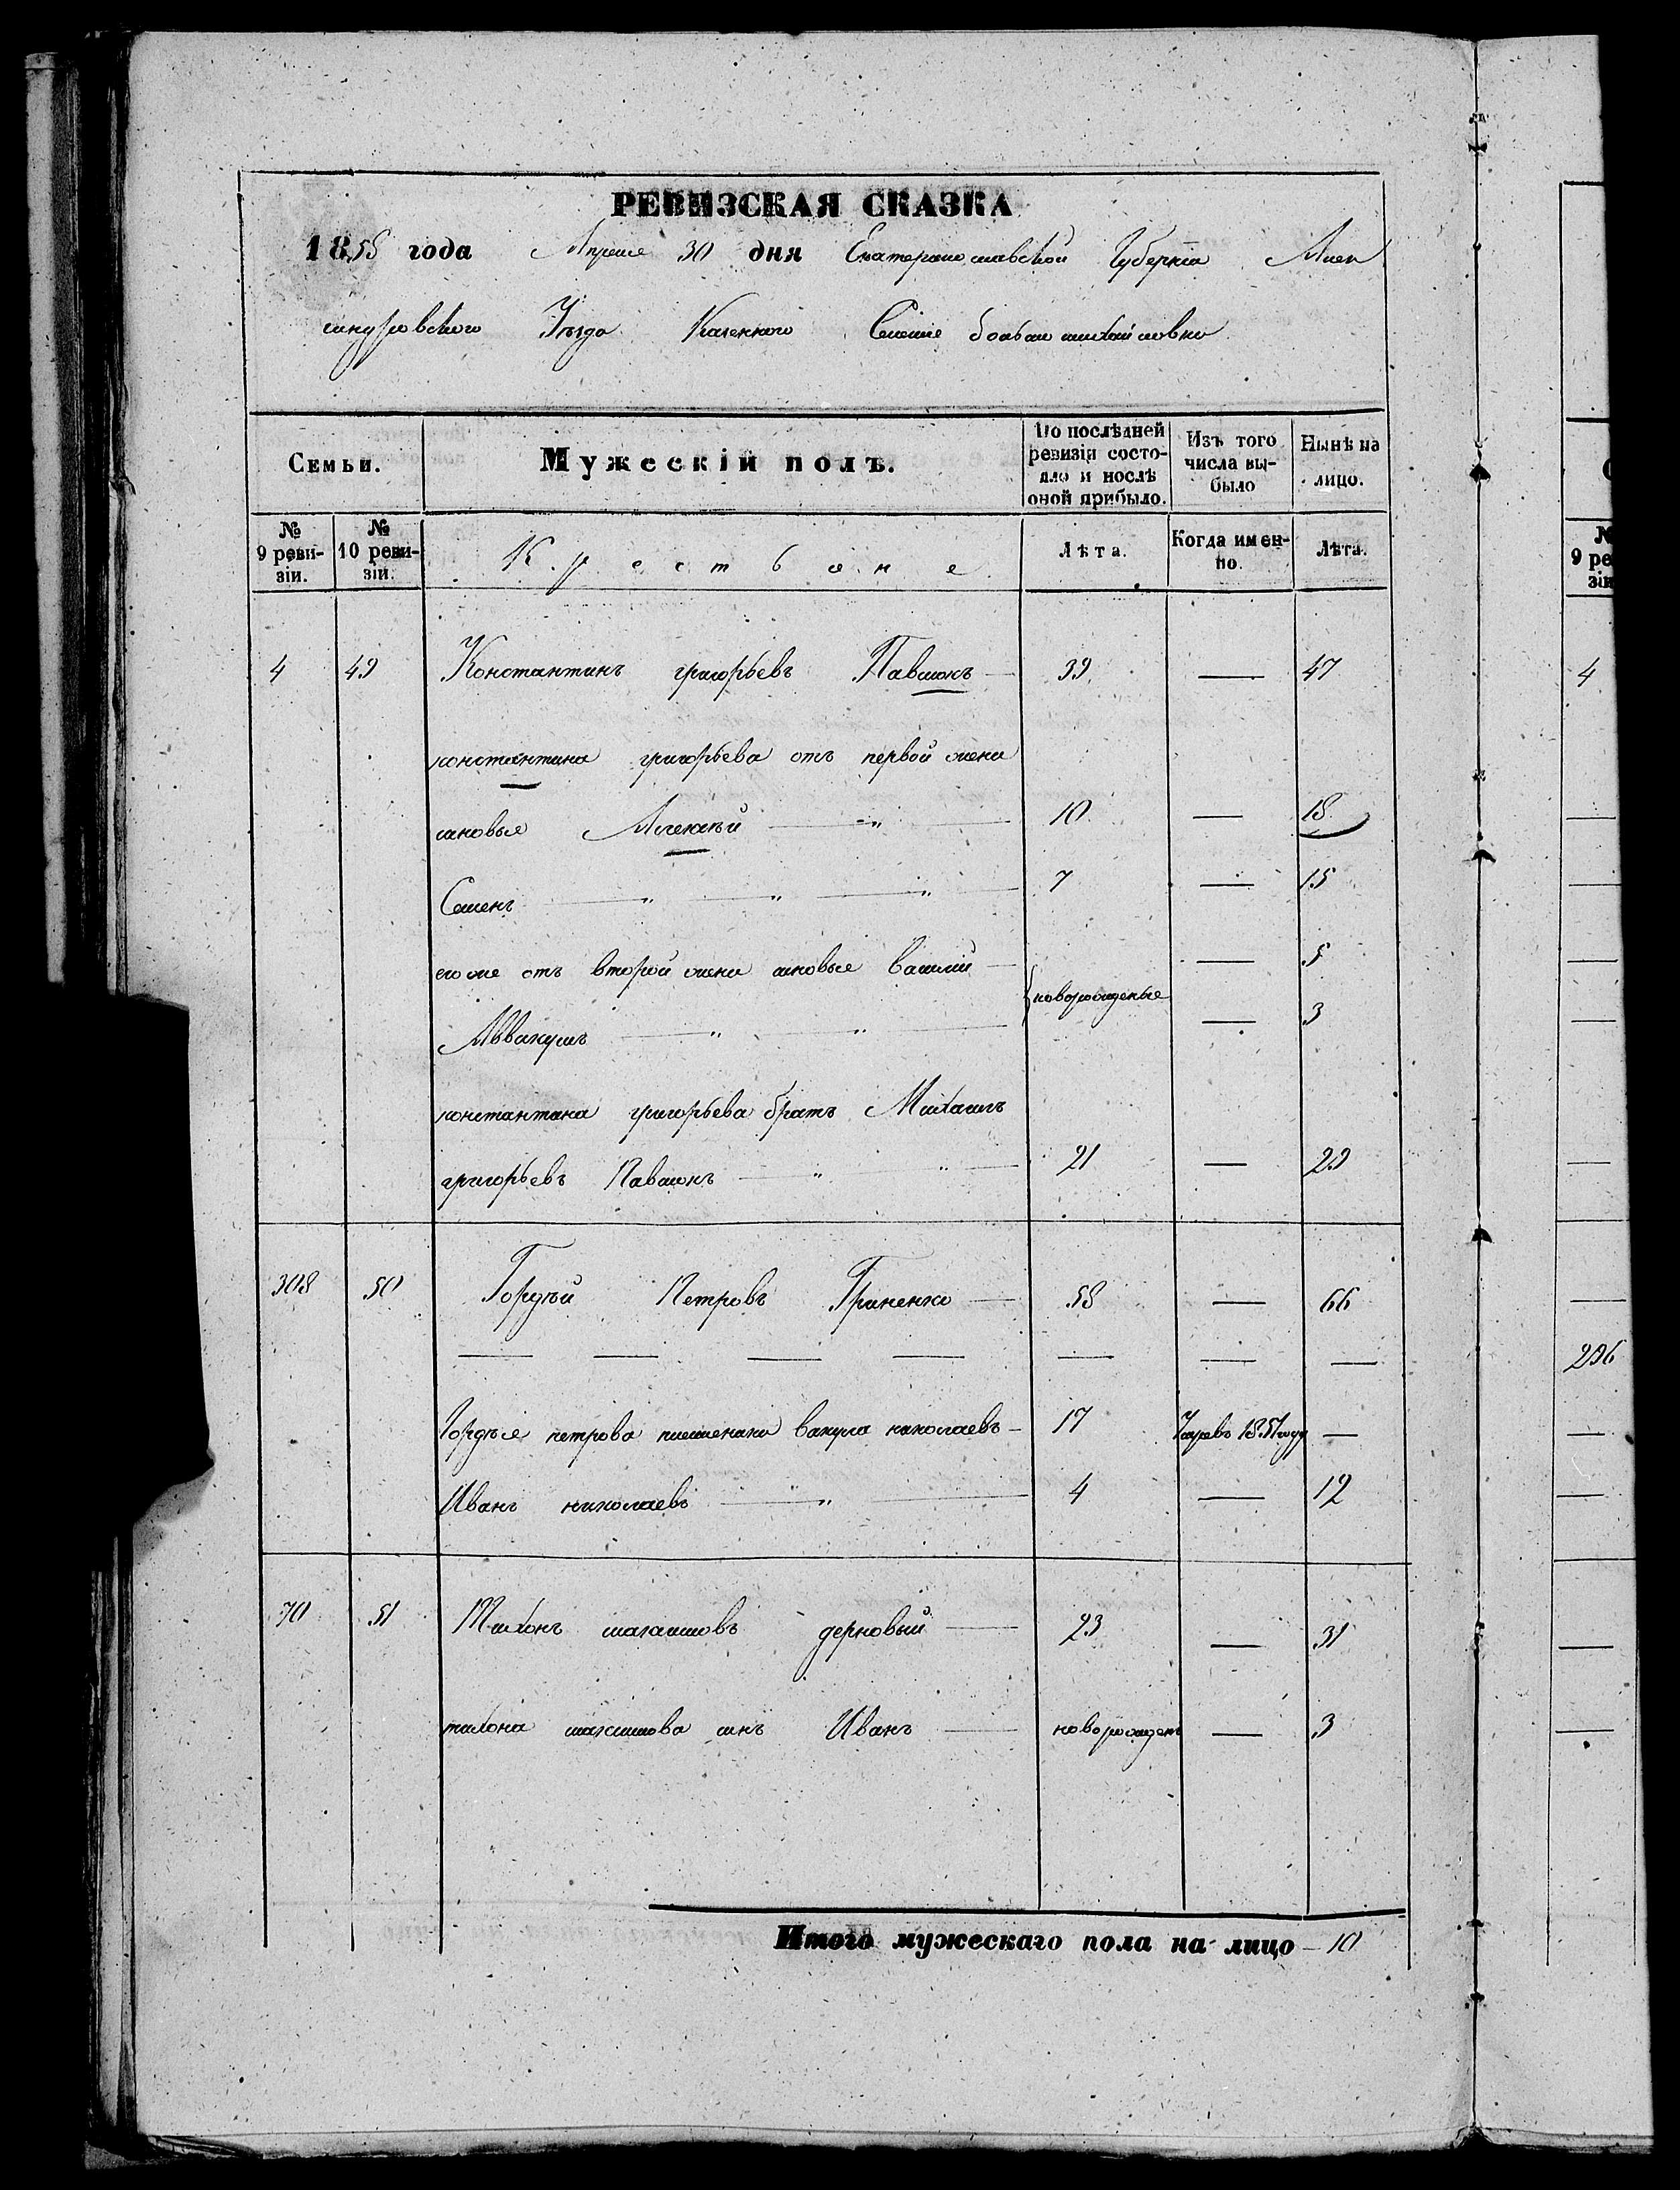 РЕВИЗСКАЯ СКАЗКА
1858 года Апреля 30 дня Екатеринославской Губернiи Алек
сандровского Уѣзда Казенного Селенiя большой михайловки
Семьи. Мужескiй полъ. По послѣдней ревизiи состояло и послѣ оной прибыло. Изъ того числа выбыло Нынѣ на лицо.
№ 9 ревизiи. № 10 ревизiи. Крестьяне Лѣта. Когда именно. Лѣта.
4 49 Константинъ григорьевъ Павлюкъ — 39 — 47
константина григорьева отъ первой жены
сыновья Алексѣй — " — 10 — 18
Семенъ — " — " — " — 7 — 15
его же отъ второй жены сыновья василiй — — 5
новорожденые
Аввакумъ — " — " — — 3
константина григорьева братъ Михаилъ
григорьевъ Павлюкъ — " — " — 21 — 29
308 50 Гордѣй Петровъ Гриненко — 58 — 66
— — — — — — —
Гордѣя петрова племянники вакула николаевъ — 17 Умревъ 1851 году —
Иванъ николаевъ — " — 4 — 12
70 51 Тихонъ максимовъ дерновый — 23 — 31
тихона максимова сынъ Иванъ — новорожденъ — 3
Итого мужескаго пола на лицо — 10
№
9 ре
зiи
4
296